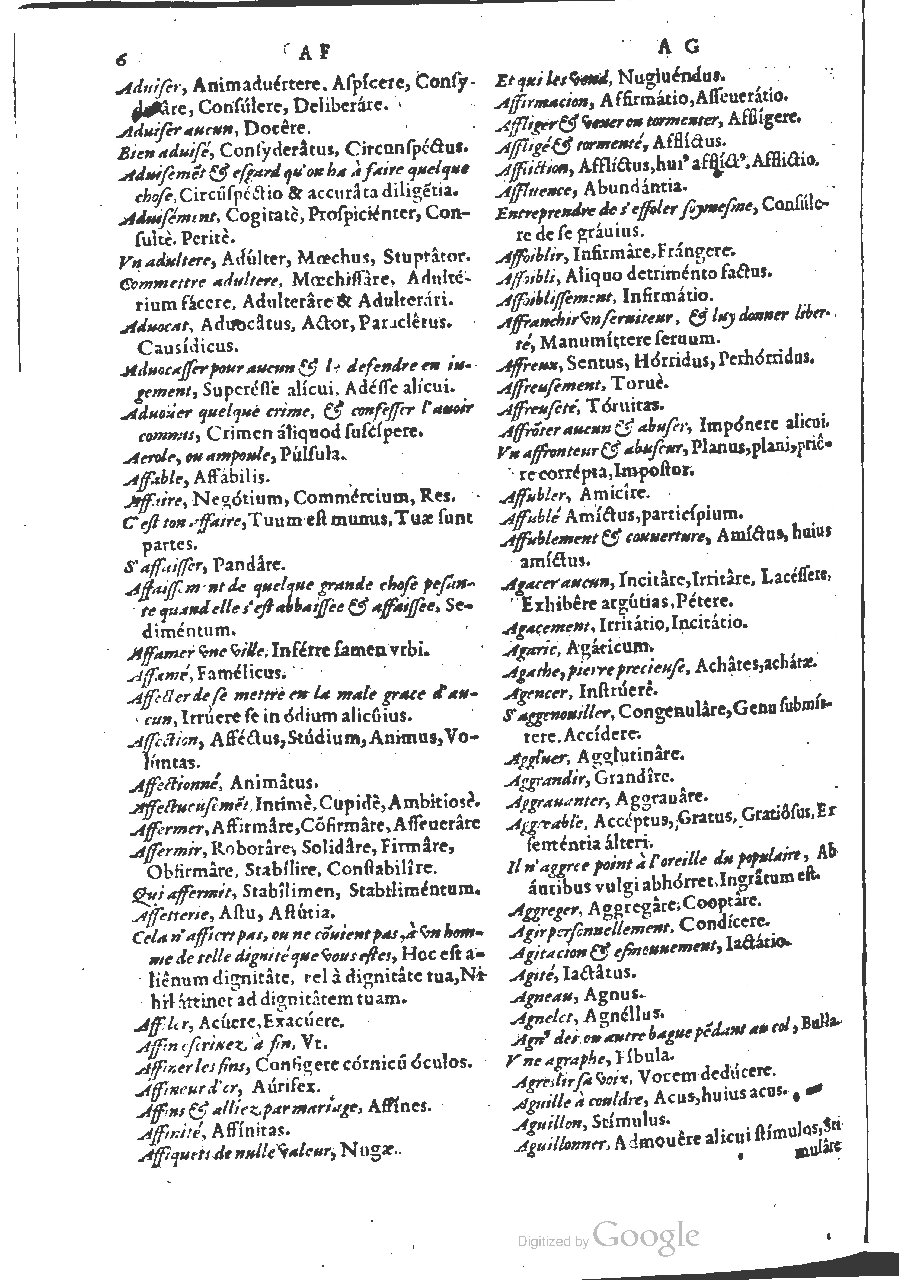 6 A F
Aduiser, Animaduértere. Aspícere, Consy-
derâre, Consúlere, Deliberáre.
Aduiser aucun, Docêre.
Bien aduisé, Consyderâtus, Circunspéctus.
Aduisemēt & esgard qu'on ha à faire quelque
chose, Circūspéctio & accurâta diligētia.
Aduisément, Cogitatè, Prospiciénter, Con-
sultè. Peritè.
Vn adultere, Adúlter, Mœchus, Stuprâtor.
Commettre adultere, Mœchissâre, Adulté-
rium fácere, Adulterâre & Adulterári.
Aduocat, Aduocâtus, Actor, Paraclêtus.
Causídicus.
Aduocasser pour aucun & le defendre en iu-
gement, Superésse alícui, Adésse alícui.
Aduoüer quelque crime, & confesser l'auoir
commis, Crimen áliquod suscípere.
Aerole, ou ampoule, Púlsula.
Affable, Affábilis.
Affaire, Negótium, Commércium, Res.
C'est ton affaire, Tuum est munus, Tuæ sunt
partes.
S'affaisser, Pandâre.
Affaissement de quelque grande chose pesan-
te quand elle s'est abbaissee & affaissée, Se-
diméntum.
Affamer vne ville, Inférre famen vrbi.
Affamé, Famélicus.
Affecter de se mettre en la male grace d'au-
cun, Irrúere se in ódium alicûius.
Affection, Afféctus, Stúdium, Animus, Vo-
lúntas.
Affectionné, Animâtus.
Affectueusemēt, Intimè, Cupidè, Ambitiosè.
Affermer, Affirmâre, Cōfirmâre, Asseuerâre
Affermir, Roborâre, Solidâre, Firmâre,
Obfirmâre, Stabílire, Constabilîre.
Qui affermit, Stabîlimen, Stabiliméntum.
Affetterie, Astu, Astútia.
Cela n'affiert pas, ou ne cōuient pas, à vn hom-
me de telle dignité que vous estes, Hoc est a-
liênum dignitâte, vel à dignitâte tua, Ni
hil áttinet ad dignitâtem tuam.
Affiler, Acúere, Exacúere.
Affin escriuez, à fin, Vt.
Affiner les fins, Configere córnicū óculos.
Affineur d'or, Aúrifex.
Affins & alliez par mariage, Affines.
Affinité, Affínitas.
Affiquets de nulle valeur, Nugæ.
A G
Et qui les vend, Nugluéndus.
Affirmacion, Affirmátio, Asseuerátio.
Affliger & vener ou tormenter, Afflígere.
Affligé & tormenté, Afflíctus.
Affliction, Afflictus, huiꝰ afflictꝰ, Afflictio.
Affluence, Abundántia.
Entreprendre de s'affoler soymesme, Consúle-
re de se gráuius.
Affoiblir, Infirmâre, Frángere.
Affoibli, Aliquo detriménto factus.
Affoiblissement, Infirmátio.
Affranchir vn seruiteur, & luy donner liber-
té, Manumíttere seruum.
Affreux, Sentus, Hórridus, Perhórridus.
Affreusement, Toruè.
Affreuseté, Tóruitas.
Affrōter aucun & abuser, Impónere alicui.
Vn affronteur & abuseur, Planus, plani, priê-
re corrépta, Impostor.
Affubler, Amicîre.
Affublé Amíctus, participium.
Affublement & couuerture, Amíctus, huius
amíctus.
Agacer aucun, Incitâre, Irritâre, Lacéssere,
Exhibêre argútias, Pétere.
Agacement, Irritátio, Incitátio.
Agaric, Agáricum.
Agathe, pierre precieuse, Achâtes, achátæ.
Agencer, Instrúere.
S'aggenouiller, Congenulâre, Genu submít-
tere, Accídere.
Aggluer, Agglutinâre.
Aggrandir, Grandîre.
Aggrauanter, Aggrauâre.
Aggreable, Accéptus, Gratus, Gratiôsus, Ex
senténtia álteri.
Il n'aggree point à l'oreille du populaire, Ab
áutibus vulgi abhórret, Ingrâtum est.
Aggreger, Aggregâre, Cooptâre.
Agir personnellement, Condícere.
Agitacion & esmouuement, Iactátio.
Agité, Iactâtus.
Agneau, Agnus.
Agnelet, Agnéllus.
Agnꝰ dei ou autre bague pēdant au col, Bulla.
Vne agraphe, Fíbula.
Agreslir sa voix, Vocem dedúcere.
Aguille à couldre, Acus, huius acus.
Aguillon, Stímulus.
Aguillonner, Admouêre alicui stímulos, Sti
mulâre
Digitized by Google